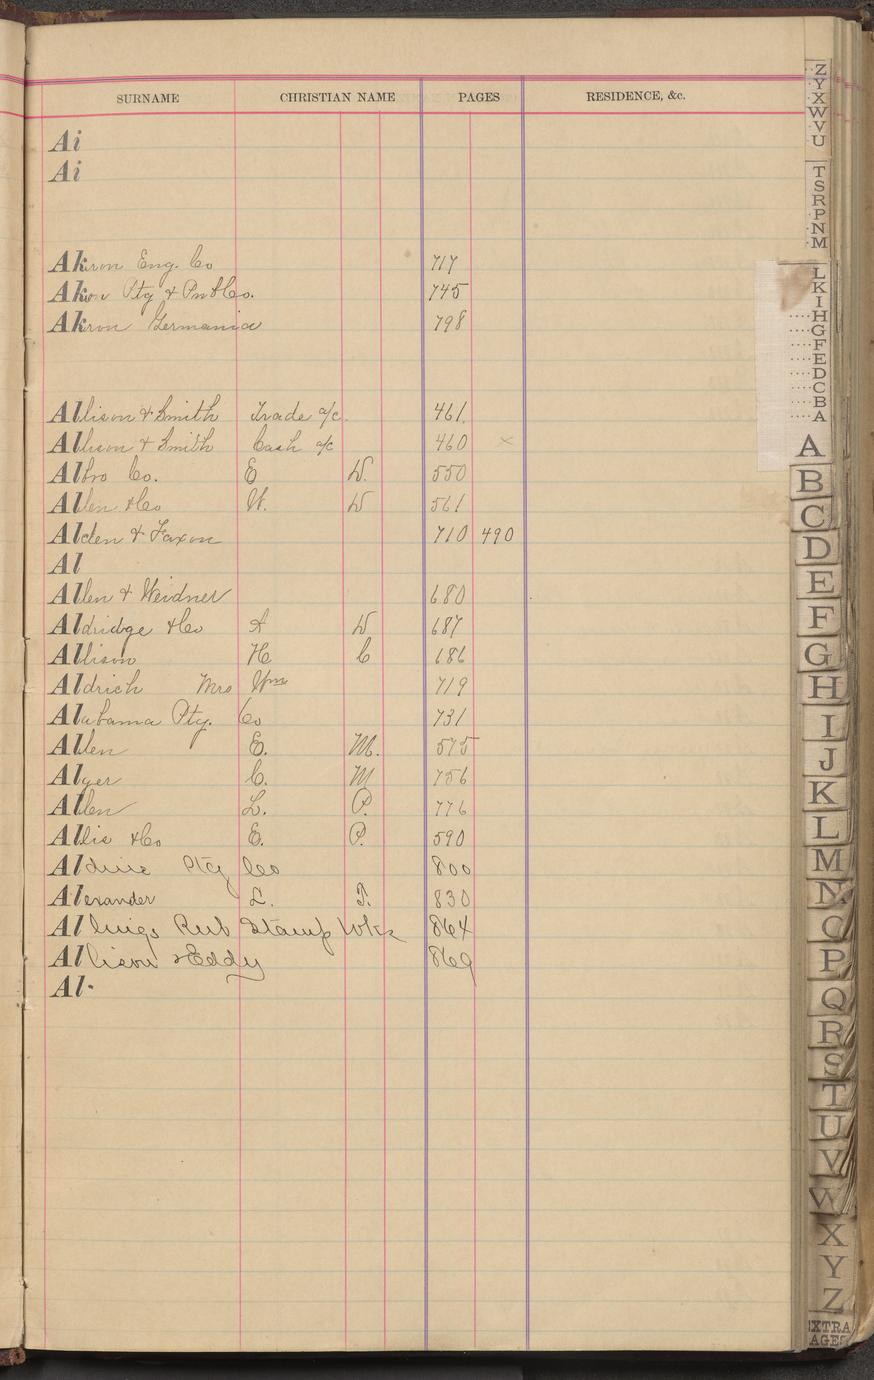 SURNAME CHRISTIAN NAME PAGES RESIDENCE, &c.
Ai
Ai
Akron Eng. Co 717
Akron Ptg & Pub Co. 745
Akron Germania 798
Allison & Smith Trade a/c. 461.
Allison & Smith Cash a/c 460 x
Albro Co. E D. 550
Allen & Co W. D 561
Alden & Faxon 710 490
Al
Allen & Weidner 680
Aldridge & Co A D 687
Allison H C 686
Aldrich Mrs Wm 719
Alabama Ptg. Co 731
Allen E. M. 575
Alger C. M 756
Allen L. P. 776
Allis & Co E. P. 590
Aldine Ptg Co 800
Alexander L. T. 830
Allings Rub Stamp Wks 864
Allison & Eddy 869
Al
Z
Y
X
W
V
U
T
S
R
P
N
M
L
K
I
H
G
F
E
D
C
B
A
A
B
C
D
E
F
G
H
I
J
K
L
M
N
O
P
Q
R
S
T
U
V
W
X
Y
Z
EXTRA
PAGES